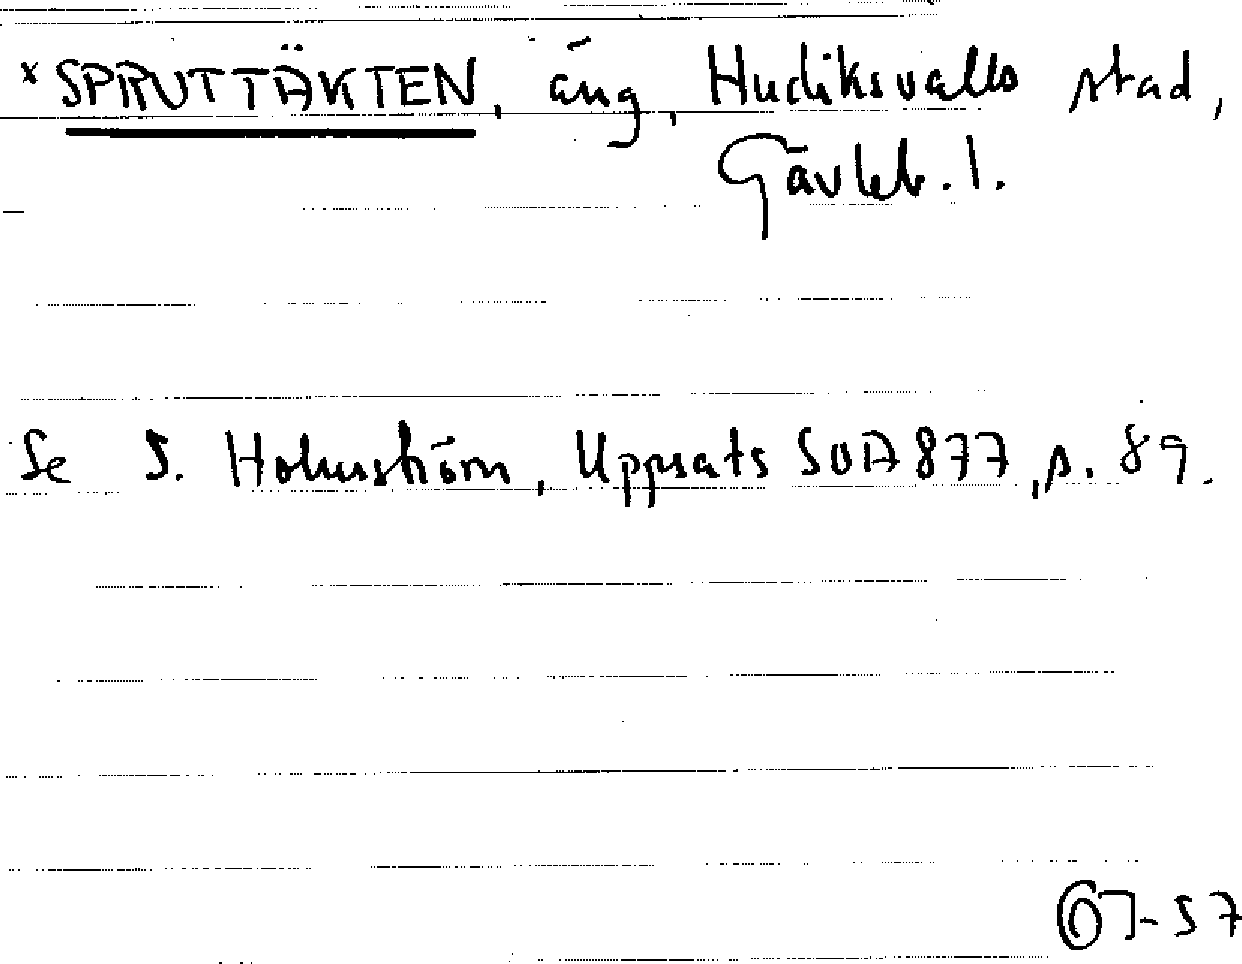 * SPRUTTÄKTEN, äng, Hudiksvalls stad,
Gävleb. l.
Se S. Holmström, Uppsats SOA 877, s. 89.